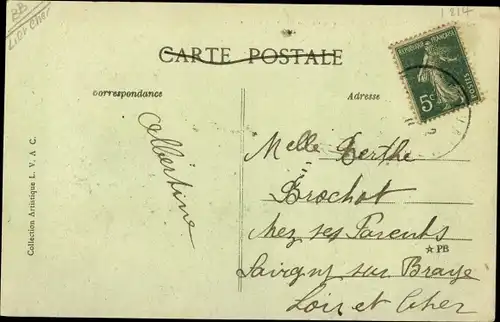 BB
Loir Cher
1214
CARTE POSTALE
RÉPUBLIQUE FRANÇAISE
POSTES
5c
Correspondance
Adresse
Albertine
Melle Berthe
Brochot
chez ses Parents
☆PB
Savigny sur Braye
Loir et Cher
Collection Artistique L. V. & C.